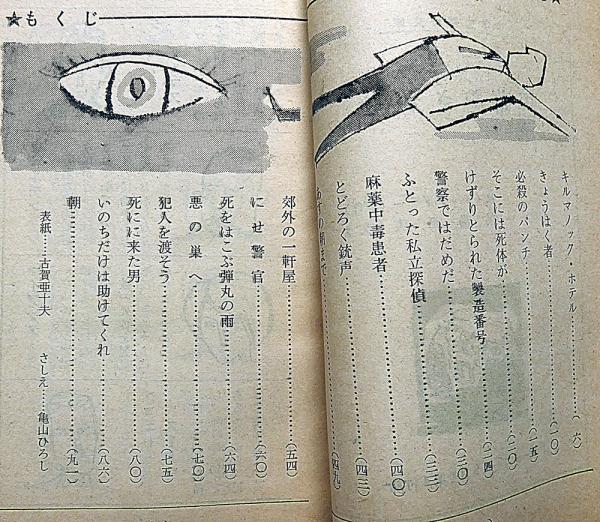 キルマノック・ホテル……(六)
きょうはく者……(一〇)
必殺のパンチ……(一五)
そこには死体が……(二〇)
けずりとられた製造番号……(二四)
警察ではだめだ……(三〇)
ふとった私立探偵……(三三)
麻薬中毒患者……(四〇)
とどろく銃声……(四三)
朝まで……(四九)
★もくじ
郊外の一軒屋……(五四)
にせ警官……(六〇)
死をはこぶ弾丸の雨……(六四)
悪の巣へ……(七〇)
犯人を渡そう……(七五)
死にに来た男……(八〇)
いのちだけは助けてくれ……(八六)
朝……(九一)
表紙……古賀亜十夫　さしえ……亀山ひろし